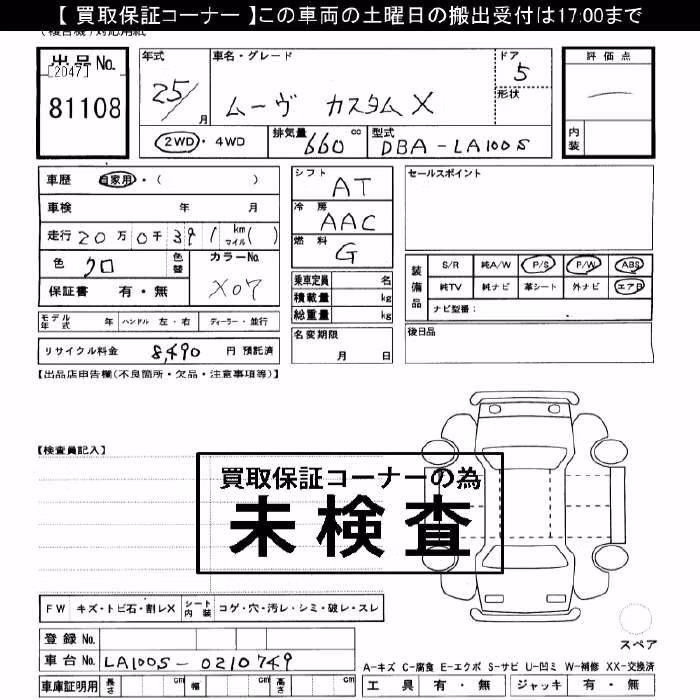 【 買取保証コーナー 】この車両の土曜日の搬出受付は17:00まで
出品No.
[2047]
81108
年式
25/
月
車名・グレード
ムーヴ カスタムX
ドア
5
形状
評価点
内装
2WD・4WD
排気量
660 cc
型式
DBA-LA100S
車歴 自家用・( )
車検 年 月
走行 20万0千391 km マイル( )
色 クロ
色替
カラーNo.
X07
保証書 有・無
シフト AT
冷房 AAC
燃料 G
乗車定員 名
積載量 kg
総重量 kg
セールスポイント
装備品
S/R 純A/W P/S P/W ABS
純TV 純ナビ 革シート 外ナビ エアB
ナビ型番:
モデル年式 年 ハンドル 左・右 ディーラー・並行
名変期限
月 日
後日品
リサイクル料金 8,490 円 預託済
【出品店申告欄(不良箇所・欠品・注意事項等)】
【検査員記入】
買取保証コーナーの為
未検査
FW キズ・トビ石・割レX シート内装 コゲ・穴・汚レ・シミ・破レ・スレ
登録No.
車台No. LA100S-0210749
車庫証明用 長さ cm 幅 cm 高さ cm
スペア
A-キズ C-腐食 E-エクボ S-サビ U-凹ミ W-補修 XX-交換済
工具 有・無 ジャッキ 有・無